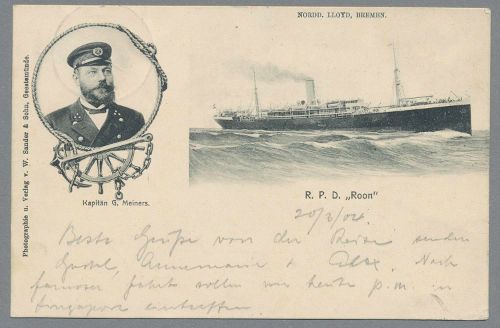 NORDD. LLOYD, BREMEN.
Photographie u. Verlag v. W. Sander & Sohn, Geestemünde.
Kapitän G. Meiners.
R. P. D. „Roon"
20/3/04.
Beste Grüße von der Reise senden
Gustel, Annemarie & . Nach
famoser Fahrt sollen wir heute p.m. in
Singapore eintreffen